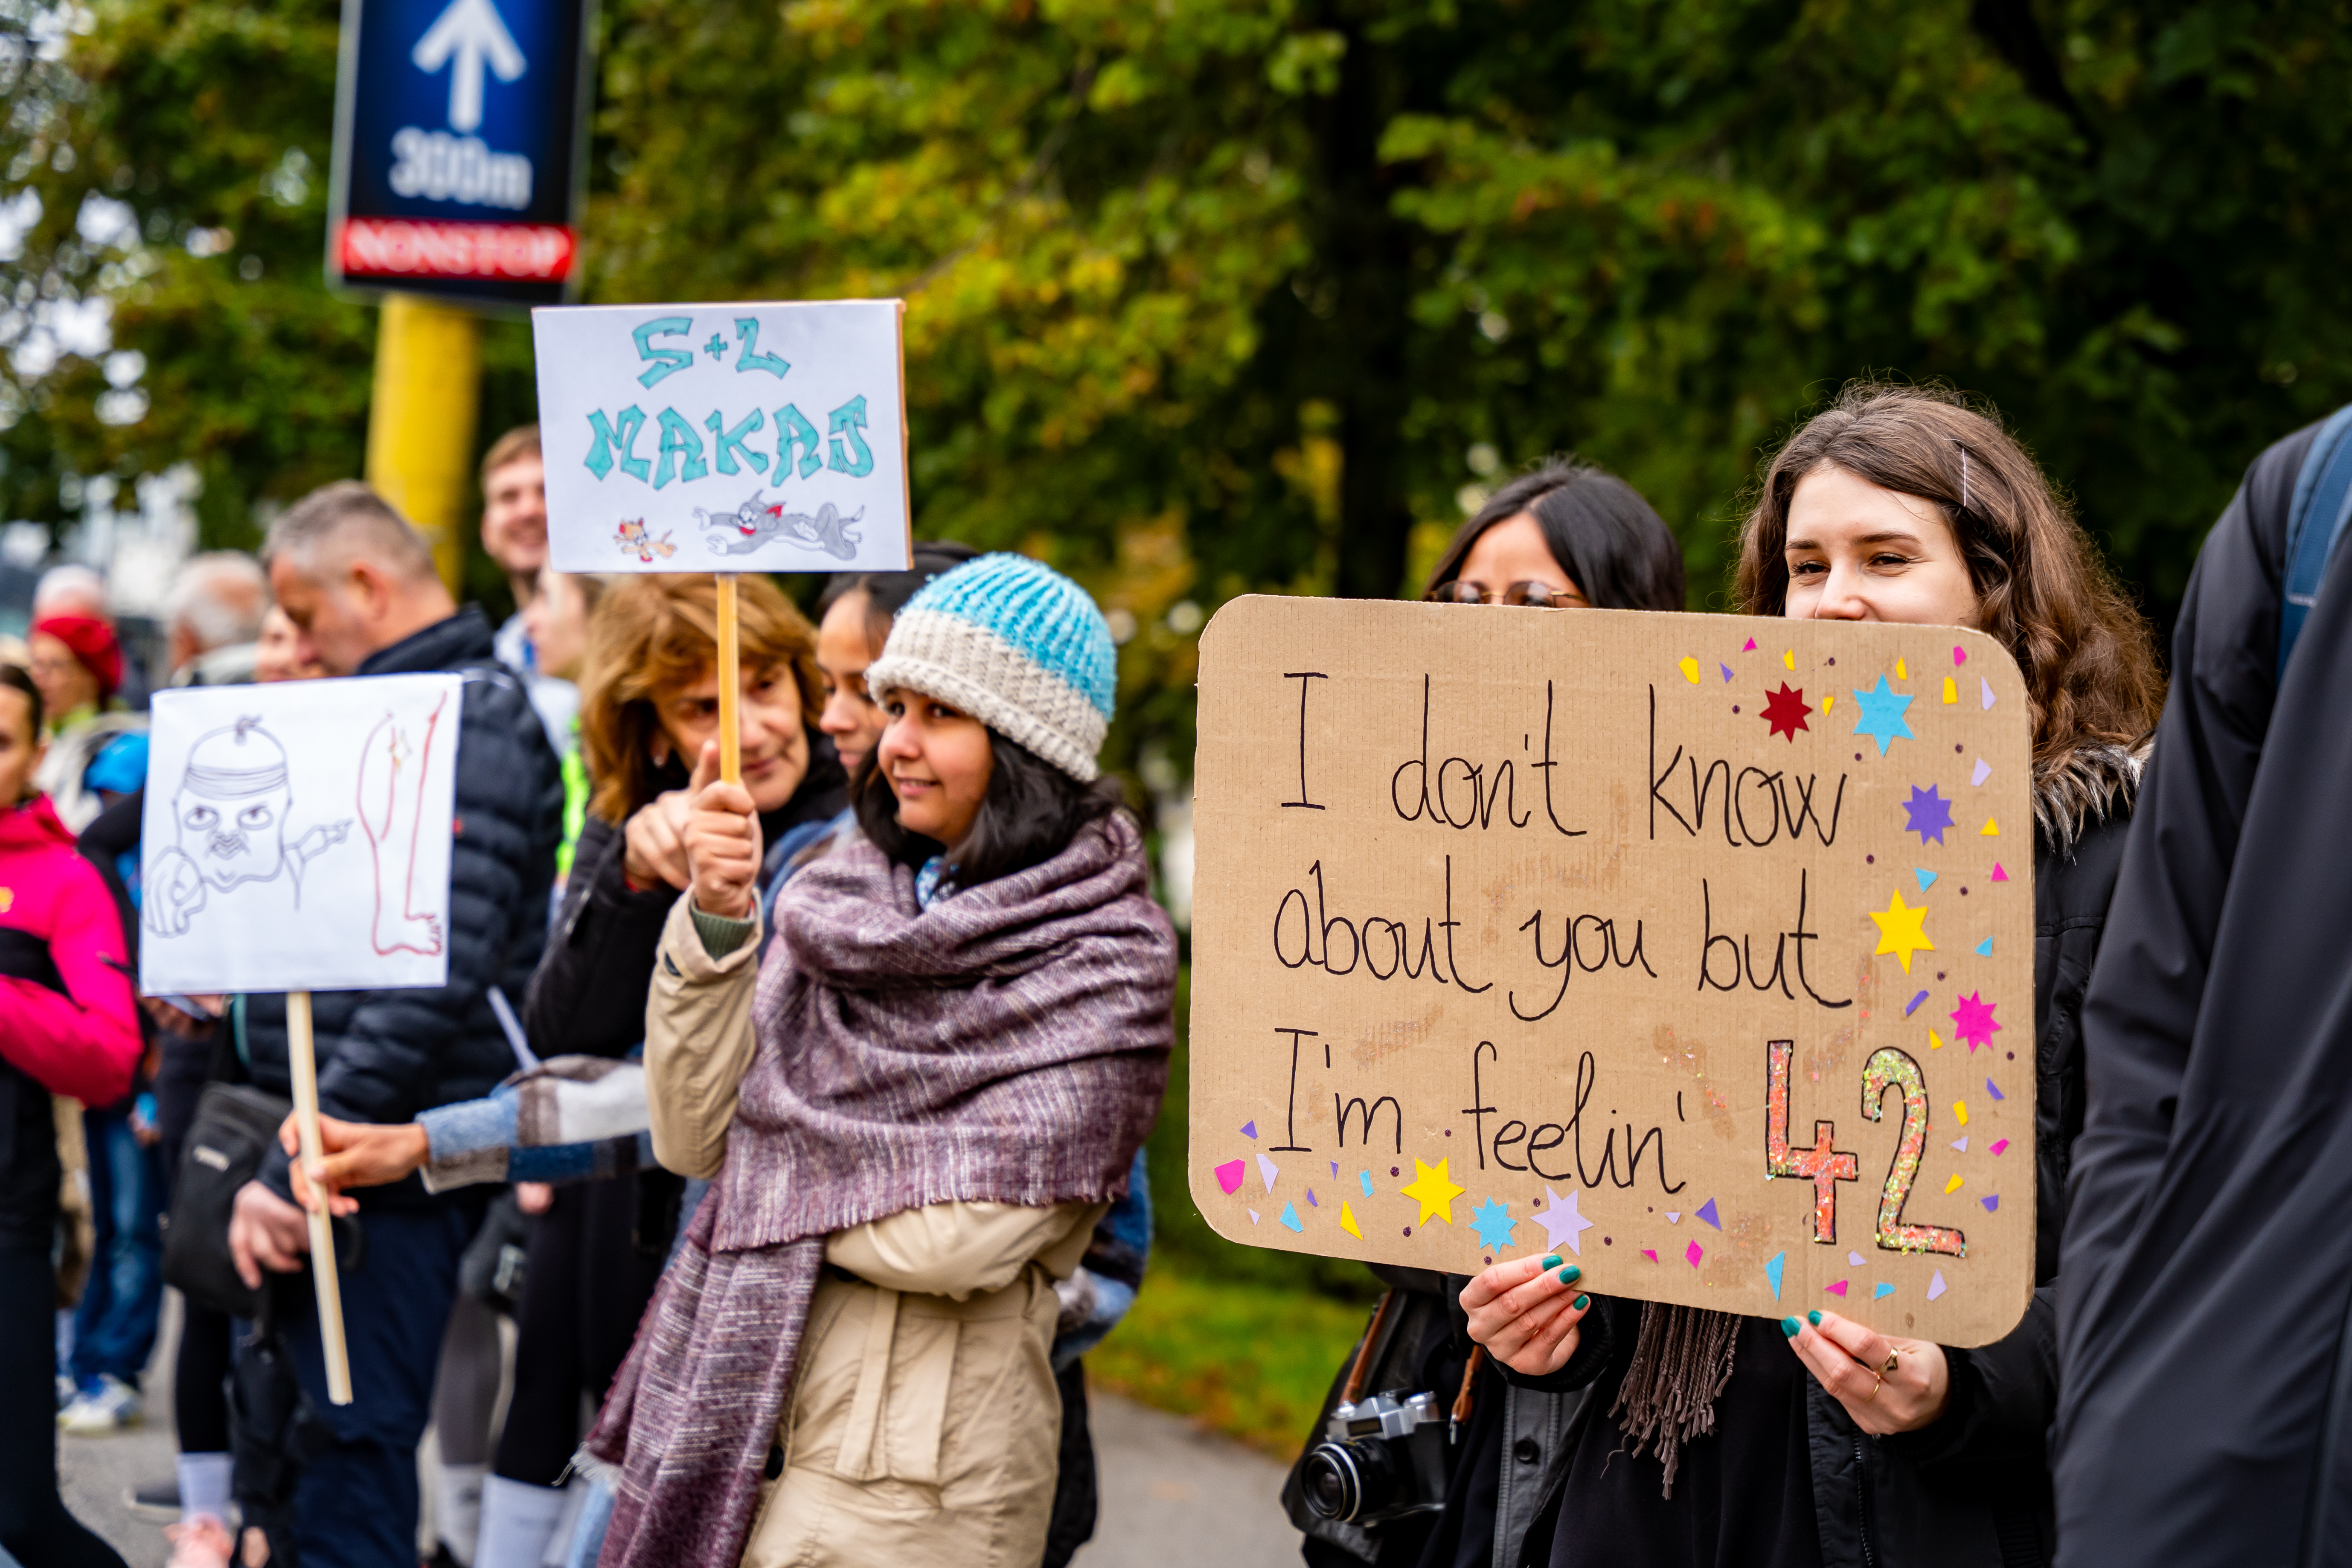 300m
NONSTOP
S+L
MAKAJ
I don't know
about you but
I'm feelin' 42